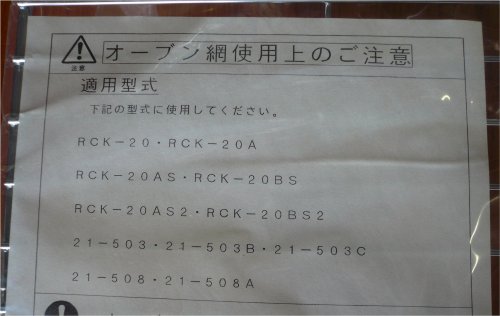 オーブン網使用上のご注意
注意
適用型式
下記の型式に使用してください。
RCK-20・RCK-20A
RCK-20AS・RCK-20BS
RCK-20AS2・RCK-20BS2
21-503・21-503B・21-503C
21-508・21-508A